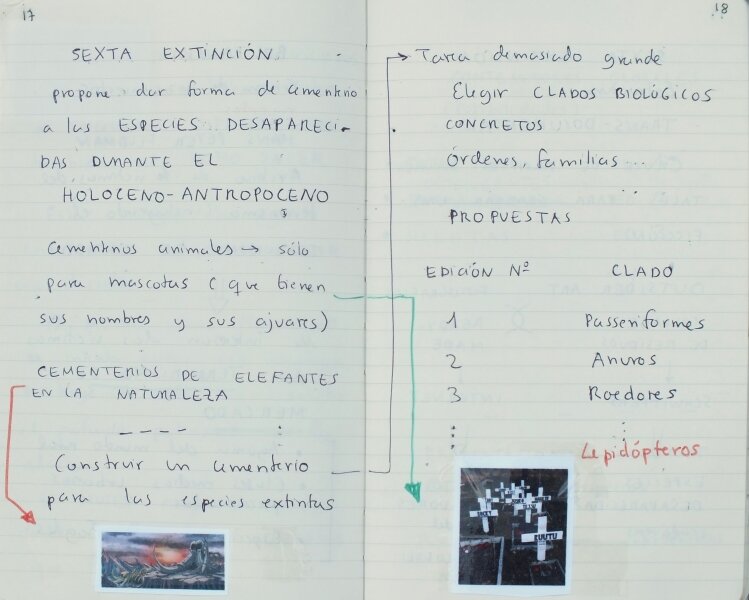 17
SEXTA EXTINCIÓN
propone dar forma de cementerio
a las ESPECIES DESAPARECI-
DAS DURANTE EL
HOLOCENO-ANTROPOCENO
Cementerios animales → sólo
para mascotas (que tienen
sus nombres y sus ajuares)
CEMENTERIOS DE ELEFANTES
EN LA NATURALEZA
Construir un cementerio
para las especies extintas
18
Tarea demasiado grande
Elegir CLADOS BIOLÓGICOS
CONCRETOS
Órdenes, familias...
PROPUESTAS
EDICIÓN Nº CLADO
1 Passeriformes
2 Anuros
3 Roedores
Lepidópteros
RUUTU